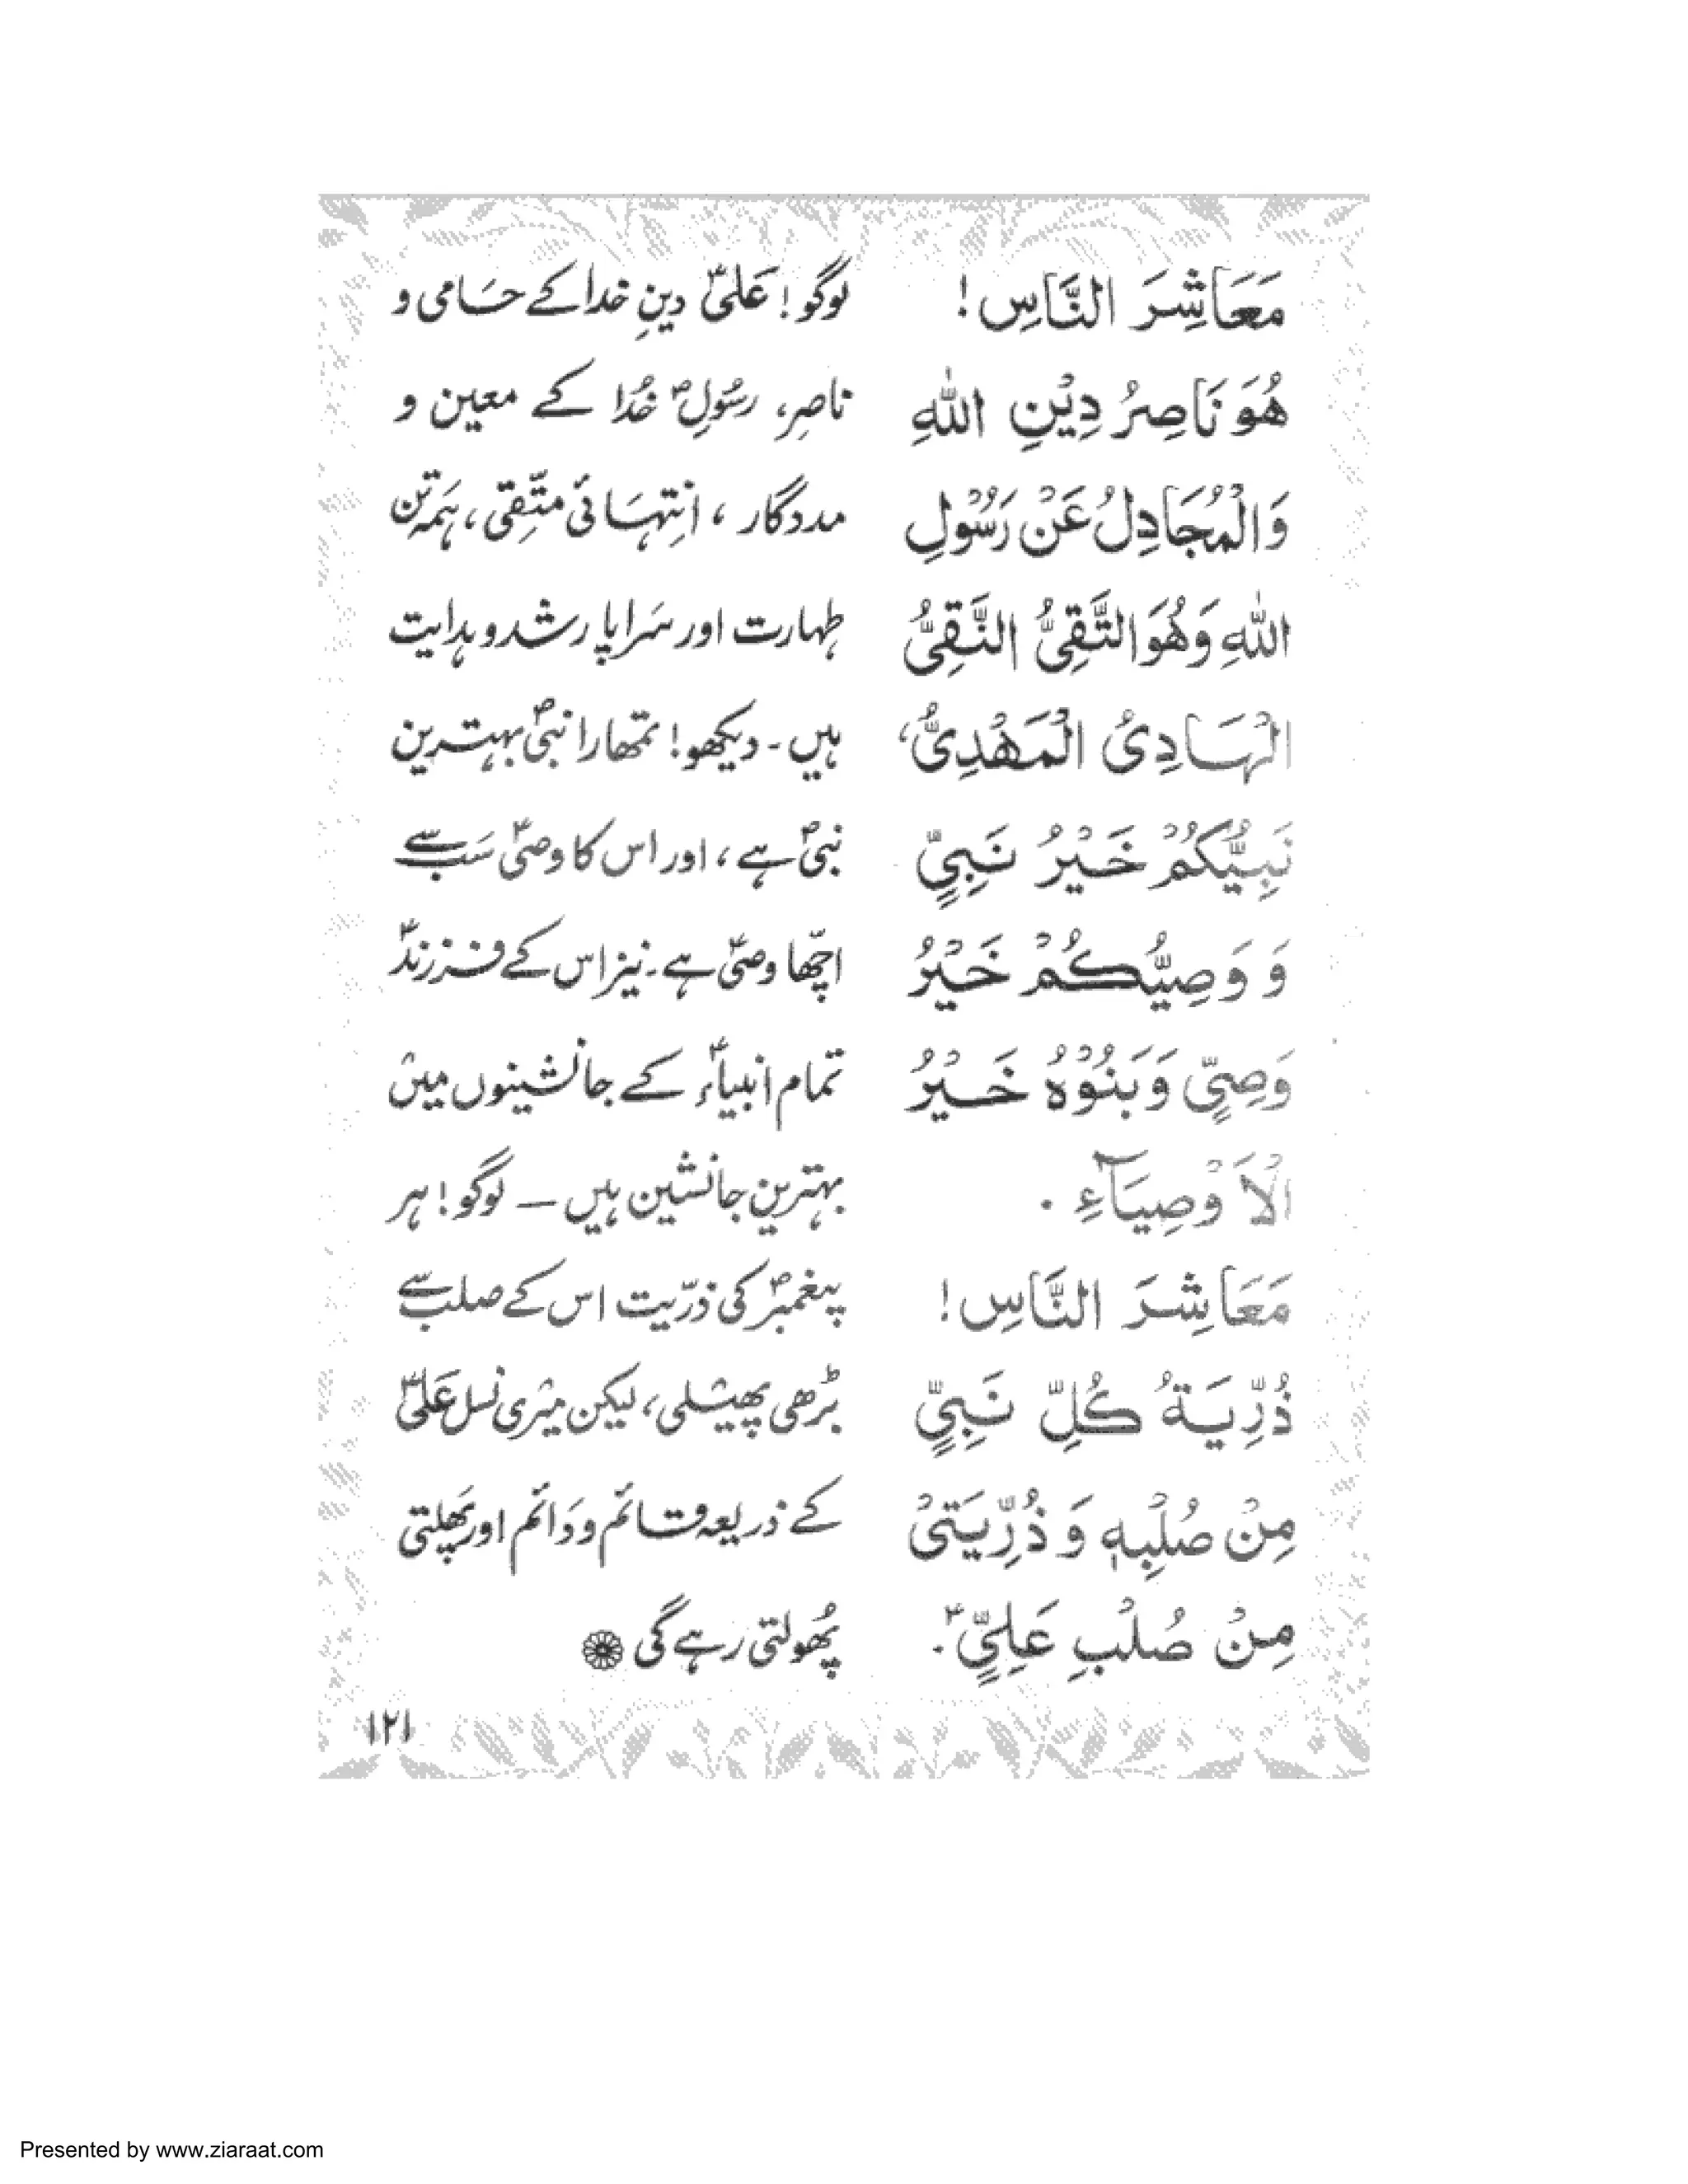 مَعَاشِرَ النَّاسِ!
هُوَ نَاصِرُ دِیْنِ اللّٰهِ
وَالْمُجَادِلُ عَنْ رَسُوْلِ
اللّٰهِ وَهُوَ التَّقِیُّ النَّقِیُّ
الْهَادِیُ الْمَهْدِیُّ،
نَبِیُّکُمْ خَیْرُ نَبِیٍّ
وَ وَصِیُّکُمْ خَیْرُ
وَصِیٍّ وَبَنُوْهُ خَیْرُ
الْاَوْصِیَآءِ ۔
مَعَاشِرَ النَّاسِ!
ذُرِّیَةُ کُلِّ نَبِیٍّ
مِنْ صُلْبِهٖ وَ ذُرِّیَتِیْ
مِنْ صُلْبِ عَلِیٍّؑ۔
لوگو! عَلیؑ دینِ خدا کے حَامی و
ناصِر، رسُولِؐ خُدا کے معین و
مددگار، اِنتہَائی متّقِی، ہَمہ تن
طہارت اور سَراپا رشد و ہدایت
ہیں۔ دیکھو! تمھارا نبیؐ بہترین
نبیؐ ہے، اور اس کا وصیؑ سَب سے
اچّھا وصیؑ ہے۔ نیز اس کے فرزندؑ
تمام انبیاءؑ کے جانشینوں میں
بہترین جانشین ہیں ۔ لوگو! ہر
پیغمبرؐ کی ذرّیت اس کے صلب سے
بڑھی پھیلی، لیکن میری نسل عَلیؑ
کے ذریعہ قائم و دَائم اور پَھلتی
پُھولتی رہے گی
۱۲۱
Presented by www.ziaraat.com